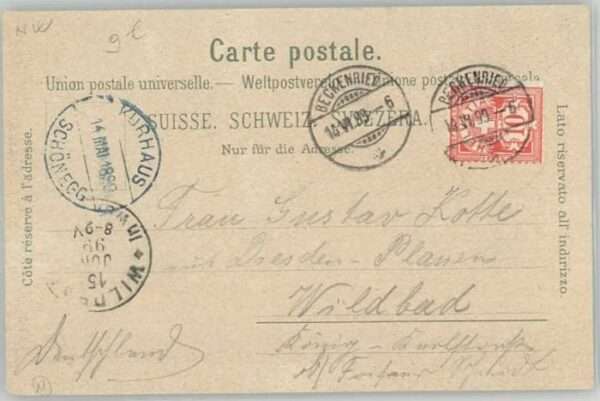 NW
Carte postale.
Union postale universelle. — Weltpostver
nione postale
SUISSE. SCHWEIZ. SVIZZERA.
Nur für die Adresse.
Côte réservé à l'adresse.
Lato riservato all' indirizzo
BECKENRIED
14.VI.99.-6
BECKENRIED
14.VI.99.-6
10
KURHAUS
14 MAI 1899
SCHÖNEGG
WILDBAD
15
JUN
99
8-9V
Frau Gustav Kotte
aus Dresden-Plauen
Wildbad
König-Karlstrasse
Deutschland